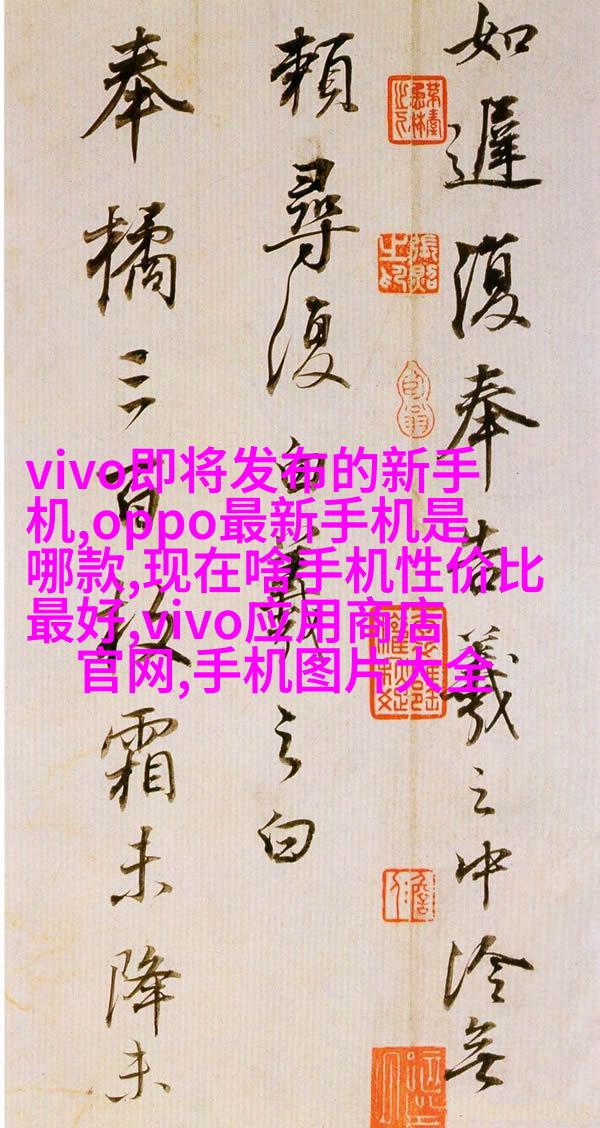 如遲復奉告羲之中冷無
賴尋復白羲之白
奉橘三百枚霜未降未
vivo即将发布的新手
机,oppo最新手机是
哪款,现在啥手机性价比
最好,vivo应用商店
官网,手机图片大全